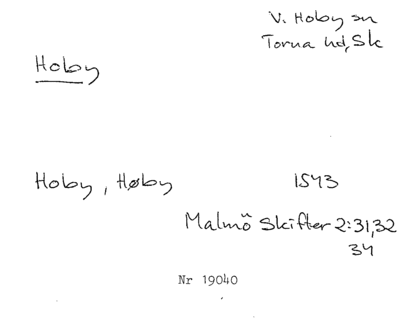 V. Hoby sn
Torna hd, Sk
Hoby
Hoby, Høby 1543
Malmö Skifter 2:31,32
34
Nr 19040